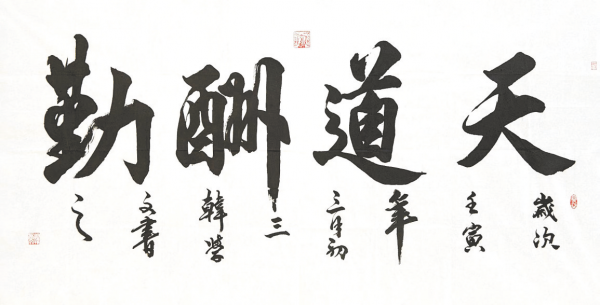 天道酬勤
歲次
壬寅
年
三月初
三
韓学
文書
之